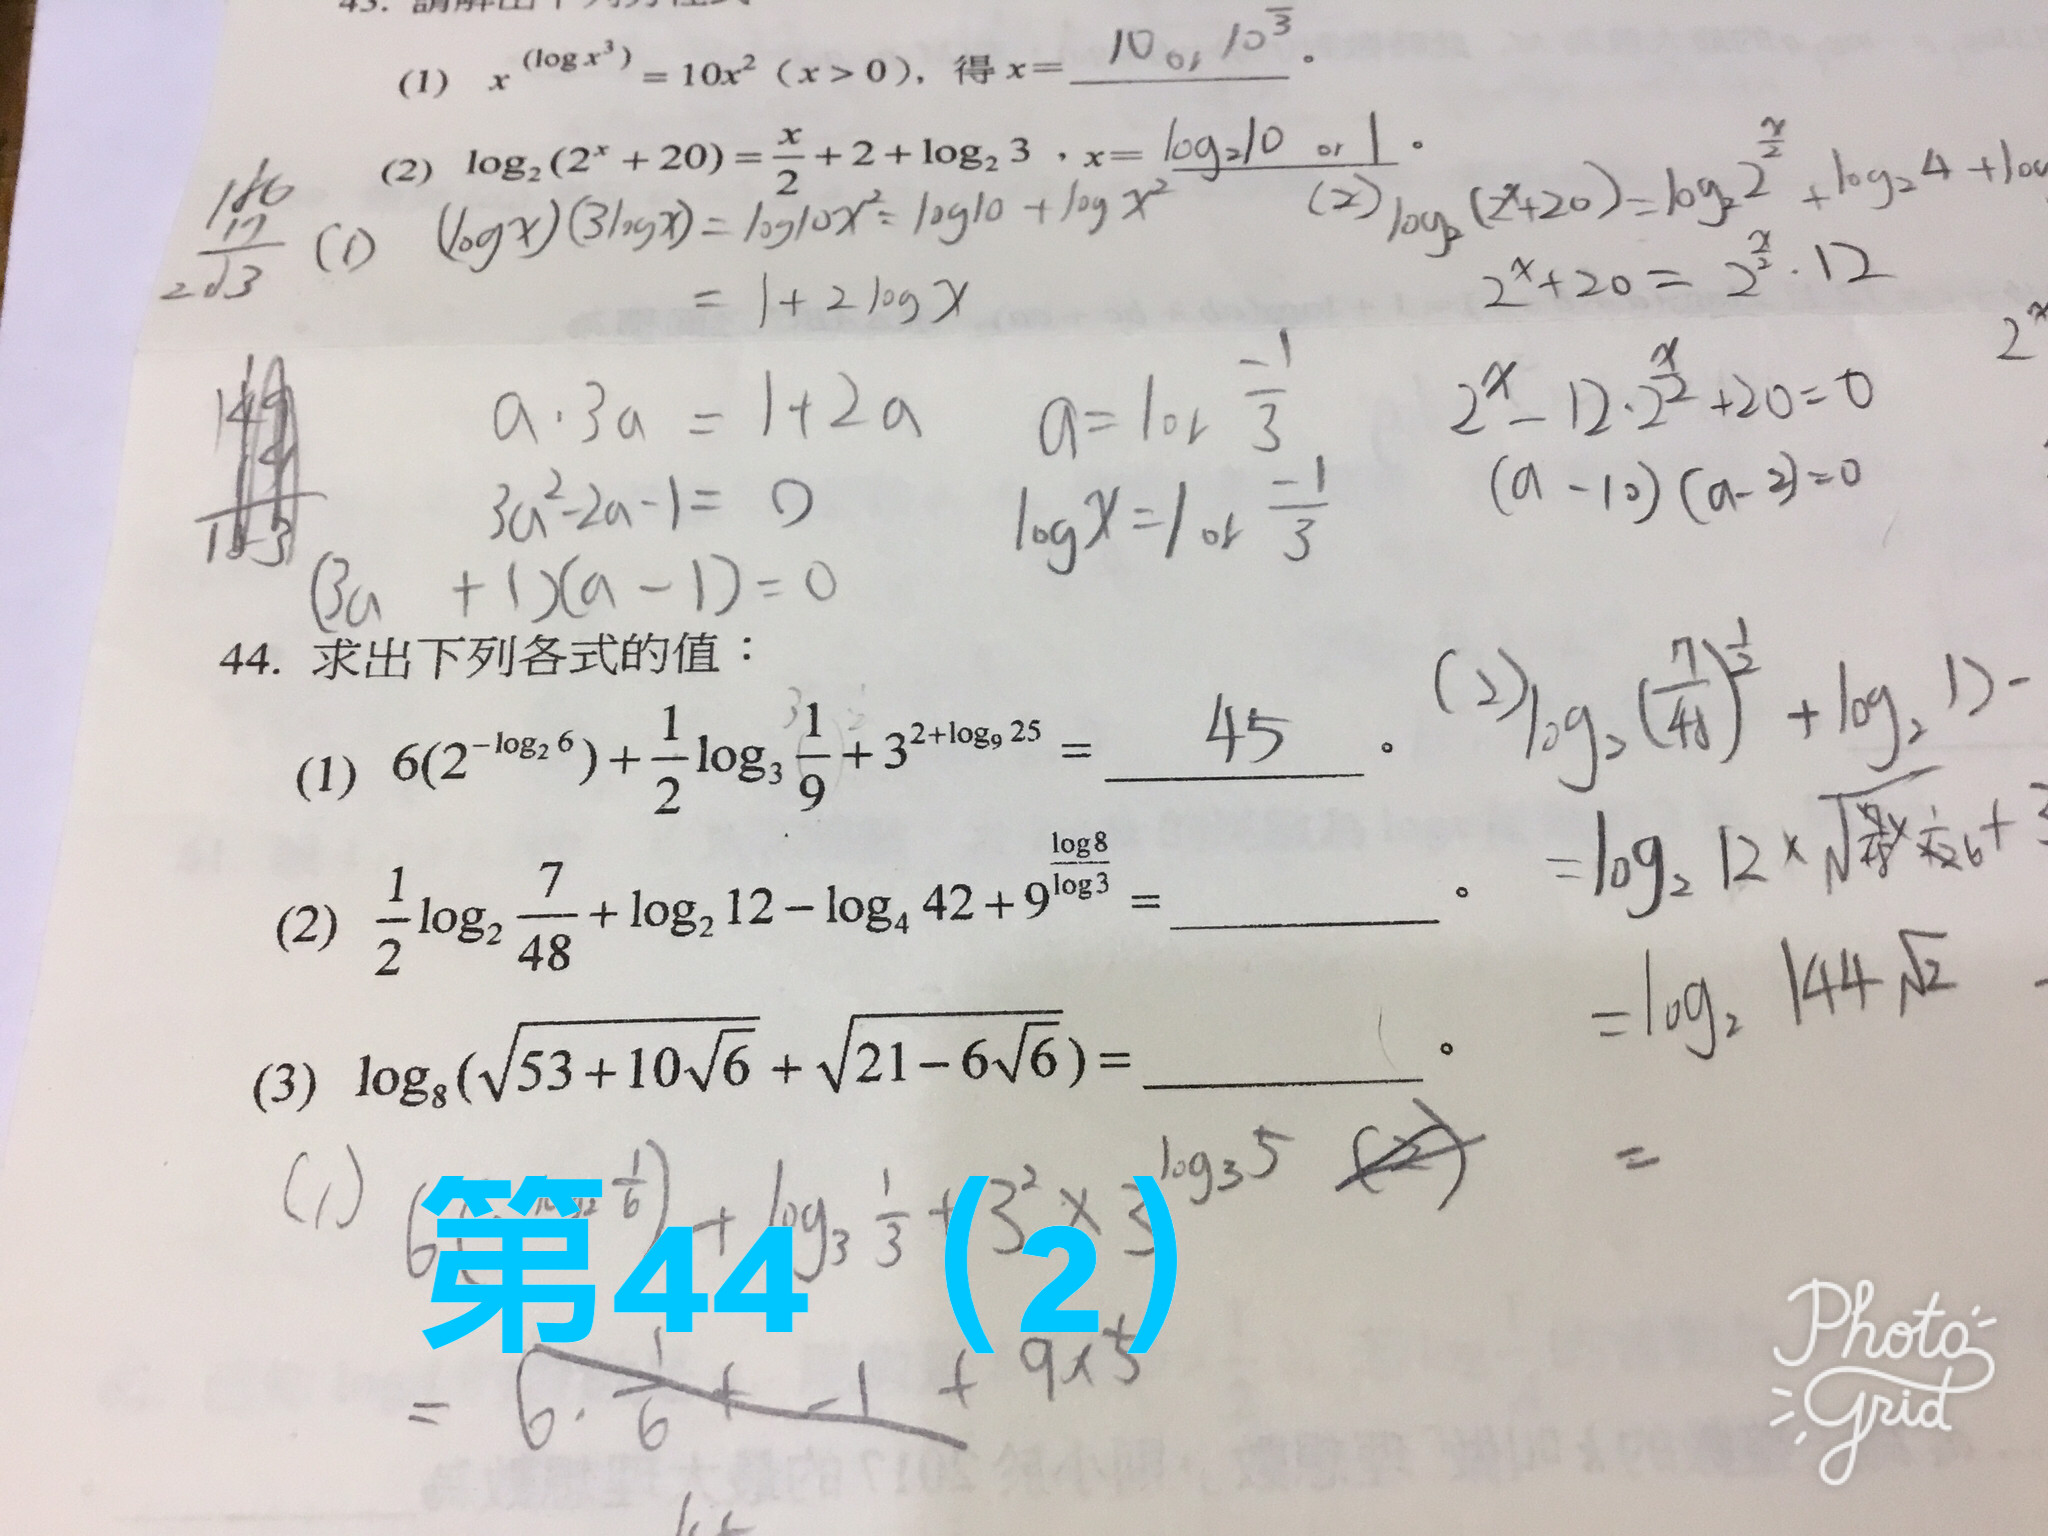 (1) x^(log x³) = 10x² (x > 0), 得 x = 10 or 10
(2) log₂(2ˣ + 20) = x/2 + 2 + log₂ 3，x = log₂10 or 1。
(1) (log x)(3 log x) = log10x² = log10 + log x²
= 1 + 2 log x
a · 3a = 1 + 2a
3a² - 2a - 1 = 0
(3a + 1)(a - 1) = 0
a = 1 or -1/3
log x = 1 or -1/3
(2) log₂(2ˣ+20) = log₂2^(x/2) + log₂4 +
2ˣ + 20 = 2^(x/2) · 12
2ˣ - 12 · 2^(x/2) + 20 = 0
(a - 10)(a - 2) = 0
44. 求出下列各式的值：
(1) 6(2^(-log₂ 6)) + 1/2 log₃ 1/9 + 3^(2+log₉ 25) = 45。
(2) 1/2 log₂ 7/48 + log₂ 12 - log₄ 42 + 9^(log8/log3) = 。
(3) log₈(√(53+10√6) + √(21-6√6)) = 。
(2) log₂(7/48)^(1/2) + log₂ 12 -
= log₂ 12 ×
= log₂ 144√2
=
(1) 6( 1/6) + log₃ 1/3 + 3² × 3^(log₃5)
第44（2）
= 6 · 1/6 + -1 + 9×5
Photo
Grid